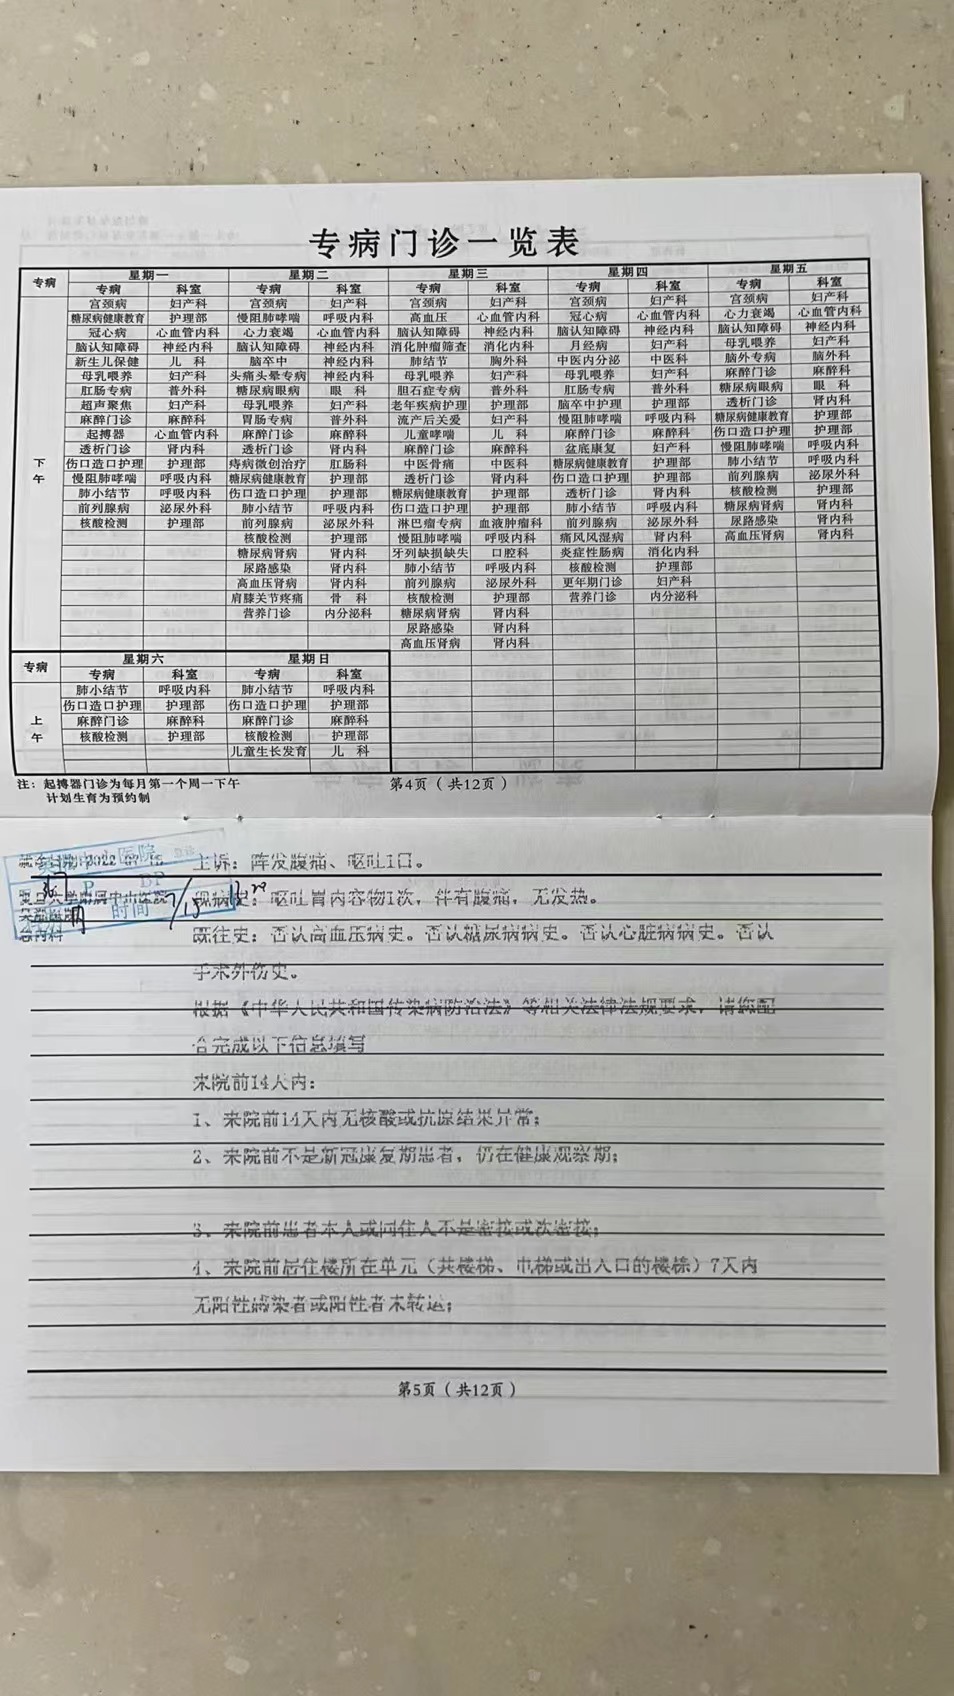 专病门诊一览表
专病 星期一 星期二 星期三 星期四 星期五
专病 科室 专病 科室 专病 科室 专病 科室 专病 科室
下午
宫颈病 妇产科 宫颈病 妇产科 宫颈病 妇产科 宫颈病 妇产科 宫颈病 妇产科
糖尿病健康教育 护理部 慢阻肺哮喘 呼吸内科 高血压 心血管内科 冠心病 心血管内科 心力衰竭 心血管内科
冠心病 心血管内科 心力衰竭 心血管内科 脑认知障碍 神经内科 脑认知障碍 神经内科 脑认知障碍 神经内科
脑认知障碍 神经内科 脑认知障碍 神经内科 消化肿瘤筛查 消化内科 月经病 妇产科 母乳喂养 妇产科
新生儿保健 儿科 脑卒中 神经内科 肺结节 胸外科 中医内分泌 中医科 脑外专病 脑外科
母乳喂养 妇产科 头痛头晕专病 神经内科 母乳喂养 妇产科 母乳喂养 妇产科 麻醉门诊 麻醉科
肛肠专病 普外科 糖尿病眼病 眼科 胆石症专病 普外科 肛肠专病 普外科 糖尿病眼病 眼科
超声聚焦 妇产科 母乳喂养 妇产科 老年疾病护理 护理部 脑卒中护理 护理部 透析门诊 肾内科
麻醉门诊 麻醉科 胃肠专病 普外科 流产后关爱 妇产科 慢阻肺哮喘 呼吸内科 糖尿病健康教育 护理部
起搏器 心血管内科 麻醉门诊 麻醉科 儿童哮喘 儿科 麻醉门诊 麻醉科 伤口造口护理 护理部
透析门诊 肾内科 透析门诊 肾内科 麻醉门诊 麻醉科 盆底康复 妇产科 慢阻肺哮喘 呼吸内科
伤口造口护理 护理部 痔病微创治疗 肛肠科 中医骨痛 中医科 糖尿病健康教育 护理部 肺小结节 呼吸内科
慢阻肺哮喘 呼吸内科 糖尿病健康教育 护理部 透析门诊 肾内科 伤口造口护理 护理部 前列腺病 泌尿外科
肺小结节 呼吸内科 伤口造口护理 护理部 糖尿病健康教育 护理部 透析门诊 肾内科 核酸检测 护理部
前列腺病 泌尿外科 肺小结节 呼吸内科 伤口造口护理 护理部 肺小结节 呼吸内科 糖尿病肾病 肾内科
核酸检测 护理部 前列腺病 泌尿外科 淋巴瘤专病 血液肿瘤科 前列腺病 泌尿外科 尿路感染 肾内科
核酸检测 护理部 慢阻肺哮喘 呼吸内科 痛风风湿病 肾内科 高血压肾病 肾内科
糖尿病肾病 肾内科 牙列缺损缺失 口腔科 炎症性肠病 消化内科
尿路感染 肾内科 肺小结节 呼吸内科 核酸检测 护理部
高血压肾病 肾内科 前列腺病 泌尿外科 更年期门诊 妇产科
肩膝关节疼痛 骨科 核酸检测 护理部 营养门诊 内分泌科
营养门诊 内分泌科 糖尿病肾病 肾内科
尿路感染 肾内科
高血压肾病 肾内科
专病 星期六 星期日
专病 科室 专病 科室
上午
肺小结节 呼吸内科 肺小结节 呼吸内科
伤口造口护理 护理部 伤口造口护理 护理部
麻醉门诊 麻醉科 麻醉门诊 麻醉科
核酸检测 护理部 核酸检测 护理部
儿童生长发育 儿科
注：起搏器门诊为每月第一个周一下午
计划生育为预约制
第4页（共12页）
主诉：阵发腹痛、呕吐1日。
现病史：呕吐胃内容物1次，伴有腹痛，无发热。
既往史：否认高血压病史。否认糖尿病病史。否认心脏病病史。否认
手术外伤史。
根据《中华人民共和国传染病防治法》等相关法律法规要求，请您配
合完成以下信息填写
来院前14天内：
1、来院前14天内无核酸或抗原结果异常；
2、来院前不是新冠康复期患者，仍在健康观察期；
3、来院前患者本人或同住人不是密接或次密接；
4、来院前居住楼所在单元（共楼梯、电梯或出入口的楼栋）7天内
无阳性感染者或阳性者未转运；
P BP
时间
第5页（共12页）